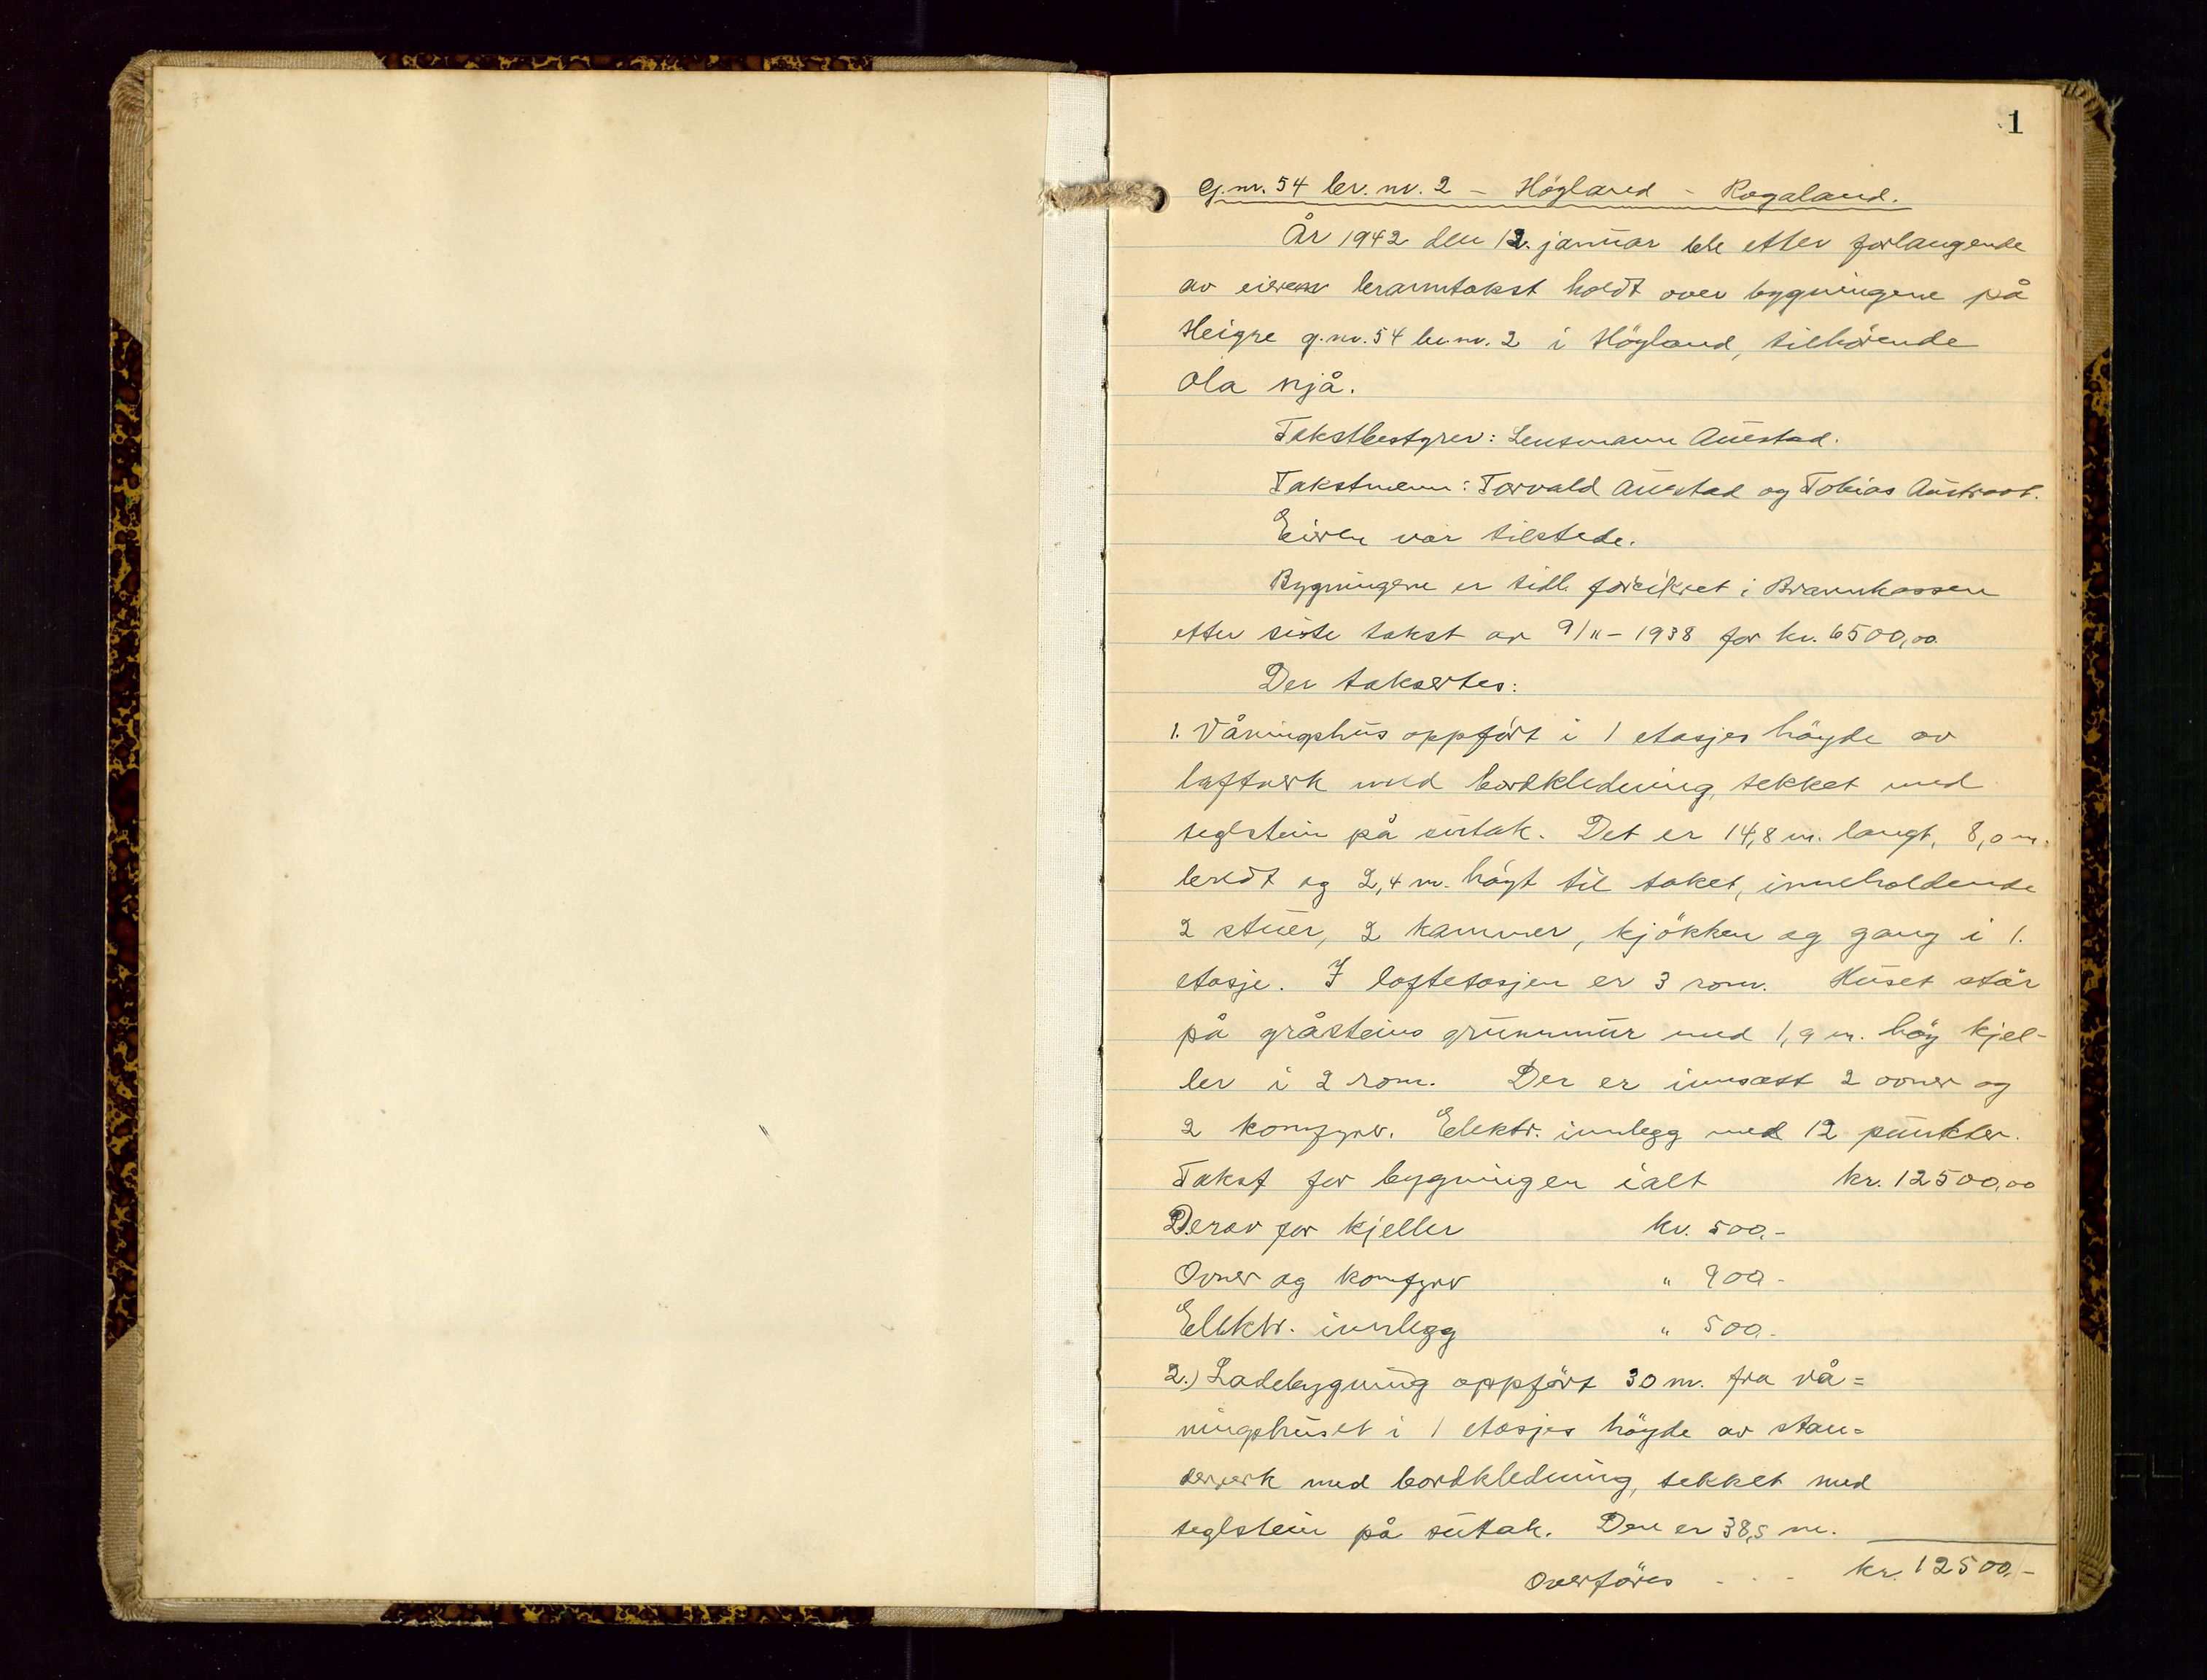 1
G.nr. 54 br. nr. 2 – Högland – Rogaland.
År 1942 den 12. januar ble etter forlangende
av eieren branntakst holdt over bygningene på
Heigre g.nr. 54 br.nr. 2 i Högland, tilhörende
Ola Njå.
Takstbestyrer: Lensmann Auestad.
Takstmenn: Torvald Auestad og Tobias Austrått.
Eiren var tilstede.
Bygningene er tidl. forsikret i Brannkassen
etter siste takst av 9/11 – 1938 for kr. 6500,00
Der taksertes:
1. Våningshus oppfört i 1 etasjes höyde av
laftverk med bordkledning, tekket med
teglstein på sutak. Det er 14,8 m. langt, 8,0 m.
bredt og 2,4 m. höyt til taket, inneholdende
2 stuer, 2 kammer, kjökken og gang i 1.
etasje. I loftetasjen er 3 rom. Huset står
på gråsteins grunnmur med 1,9 m. höy kjel-
ler i 2 rom. Der er innsatt 2 ovner og
2 komfyrer. Elektr. innlegg med 12 punkter.
Takst for bygningen ialt kr. 12500,00
Derav for kjeller kr. 500.-
Ovner og komfyrer " 900.-
Elektr. innlegg " 500.-
2.) Ladebygning oppfört 30 m. fra vå=
ningshuset i 1 etasjes höyde av stan=
derverk med bordkledning, tekket med
teglstein på sutak. Den er 38,5 m.
Overföres - - - kr. 12500,-